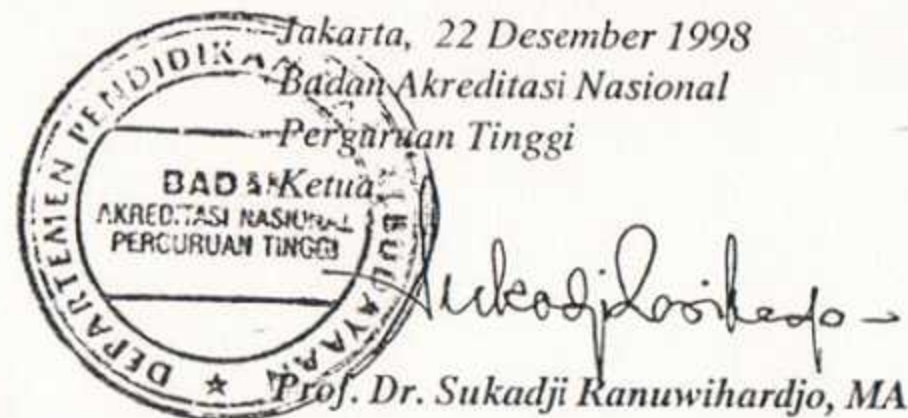 Jakarta, 22 Desember 1998
Badan Akreditasi Nasional
Perguruan Tinggi
Ketua
DEPARTEMEN PENDIDIKAN KEBUDAYAAN
BADAN
AKREDITASI NASIONAL
PERGURUAN TINGGI
Prof. Dr. Sukadji Ranuwihardjo, MA